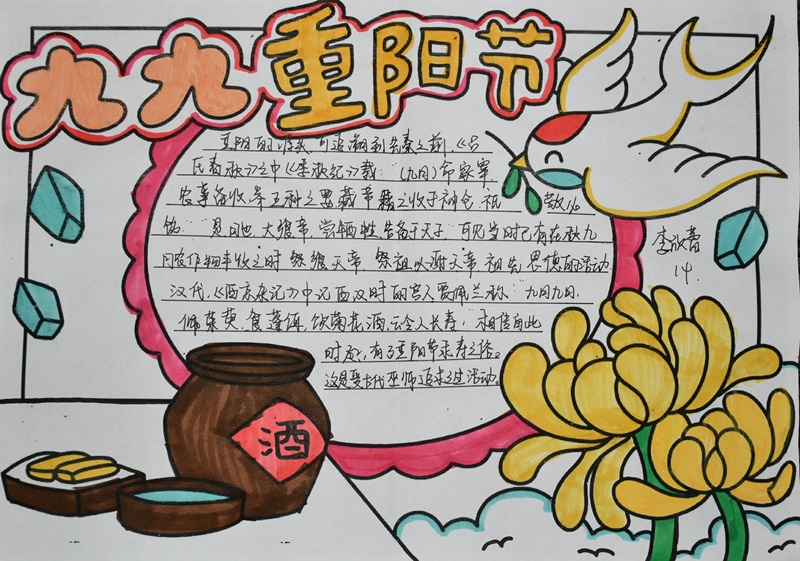 九九重阳节
重阳的源头,可追溯到先秦之前,《吕
氏春秋》之中《季秋纪》载:"(九月)命家宰,
农事备收,举五种之要。藏帝籍之收于神仓,祗敬必
饬。""是日也,大飨帝,尝牺牲,告备于天子"可见当时已有在秋九
月农作物丰收之时祭飨天帝,祭祖,以谢天帝、祖先恩德的活动
汉代,《西京杂记》中记西汉时的宫人贾佩兰称:"九月九日,
佩茱萸,食蓬饵,饮菊花酒,云令人长寿,"相传自此
时起,有了重阳节求寿之俗。
这是受古代巫师追求之过活动。
14.
酒